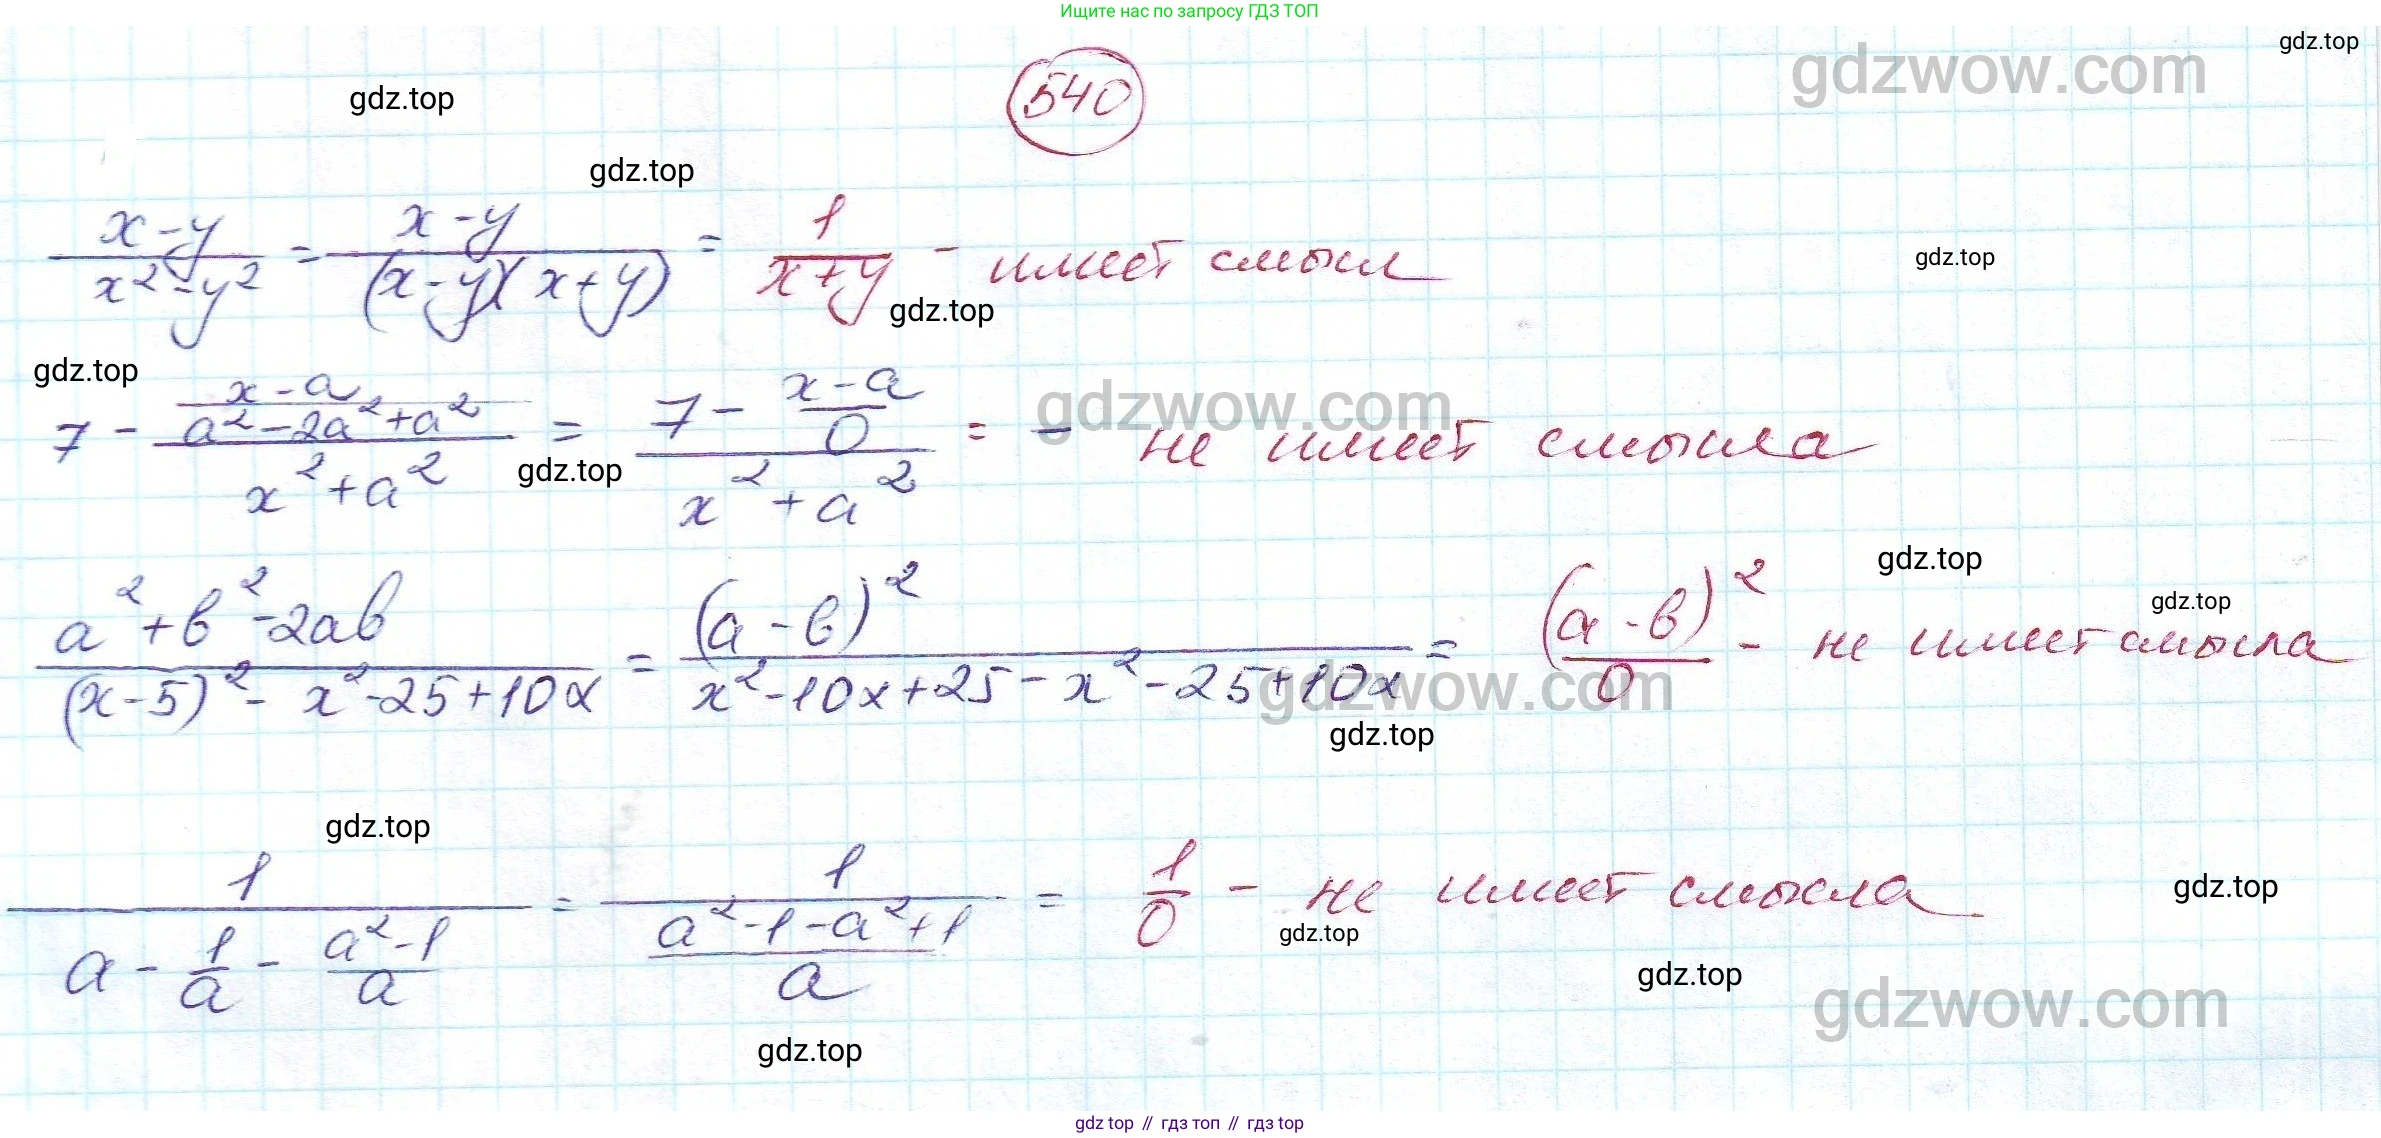 Ищите нас по запросу ГДЗ ТОП
gdz.top
gdzwow.com
540
gdz.top
gdz.top
(x-y)/(x²-y²) = (x-y)/((x-y)(x+y)) = 1/(x+y) - имеет смысл
gdz.top
gdz.top
gdz.top
(7 - (x-a)/(a²-2a²+a²))/(x²+a²) = (7 - (x-a)/0)/(x²+a²) = - не имеет смысла
gdzwow.com
gdz.top
gdz.top
gdz.top
(a²+b²-2ab)/((x-5)²-x²-25+10x) = (a-b)²/(x²-10x+25-x²-25+10x) = (a-b)²/0 - не имеет смысла
gdzwow.com
gdz.top
gdz.top
1/(a - 1/a - (a²-1)/a) = 1/((a²-1-a²+1)/a) = 1/0 - не имеет смысла
gdz.top
gdz.top
gdz.top
gdzwow.com
gdz.top
gdz top // гдз топ // гдз top